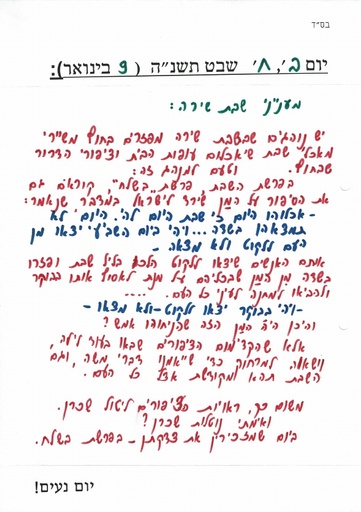 בס"ד
יום ב', ח' שבט תשנ"ה ( 9 בינואר):
מענ"ני שבת שירה:
יש נוהגים שבשבת שירה מפזרים בחוץ משיירי
מאכלי שבת שיאכלום עופות הבית וציפורי הדרור
שבחוץ. וטעם למנהג זה:
בפרשת השבת, פרשת "בשלח", קוראים גם
את הסיפור על המן שירד לישראל במדבר שנאמר:
- אכלוהו היום כי שבת היום לה'. היום לא
תמצאהו בשדה...ויהי ביום השביעי יצאו מן
העם ללקוט ולא מצאו -
אותם האנשים שיצאו ללקוט הלכו בליל שבת ופזרו
בשדה מן המן שבכליהם על מנת לאסוף אותו בבוקר
ולהביאו למחנה לעיני כל העם. ....
-ויהי בבוקר יצאו ללקוט-ולא מצאו -
והיכן היה המן הזה שהניחוהו אמש?
אלא שהקדימום הציפורים שבאו בעוד לילה,
ונשאוהו למרחוק כדי שיאמנו דברי משה, וגם
השבת תהא מקודשת אצל כל העם.
משום כך, ראויות הציפורים ליטול שכרן.
ואימתי נוטלות שכרן?
ביום שמזכירין את צדקתן - בפרשת בשלח.
יום נעים!